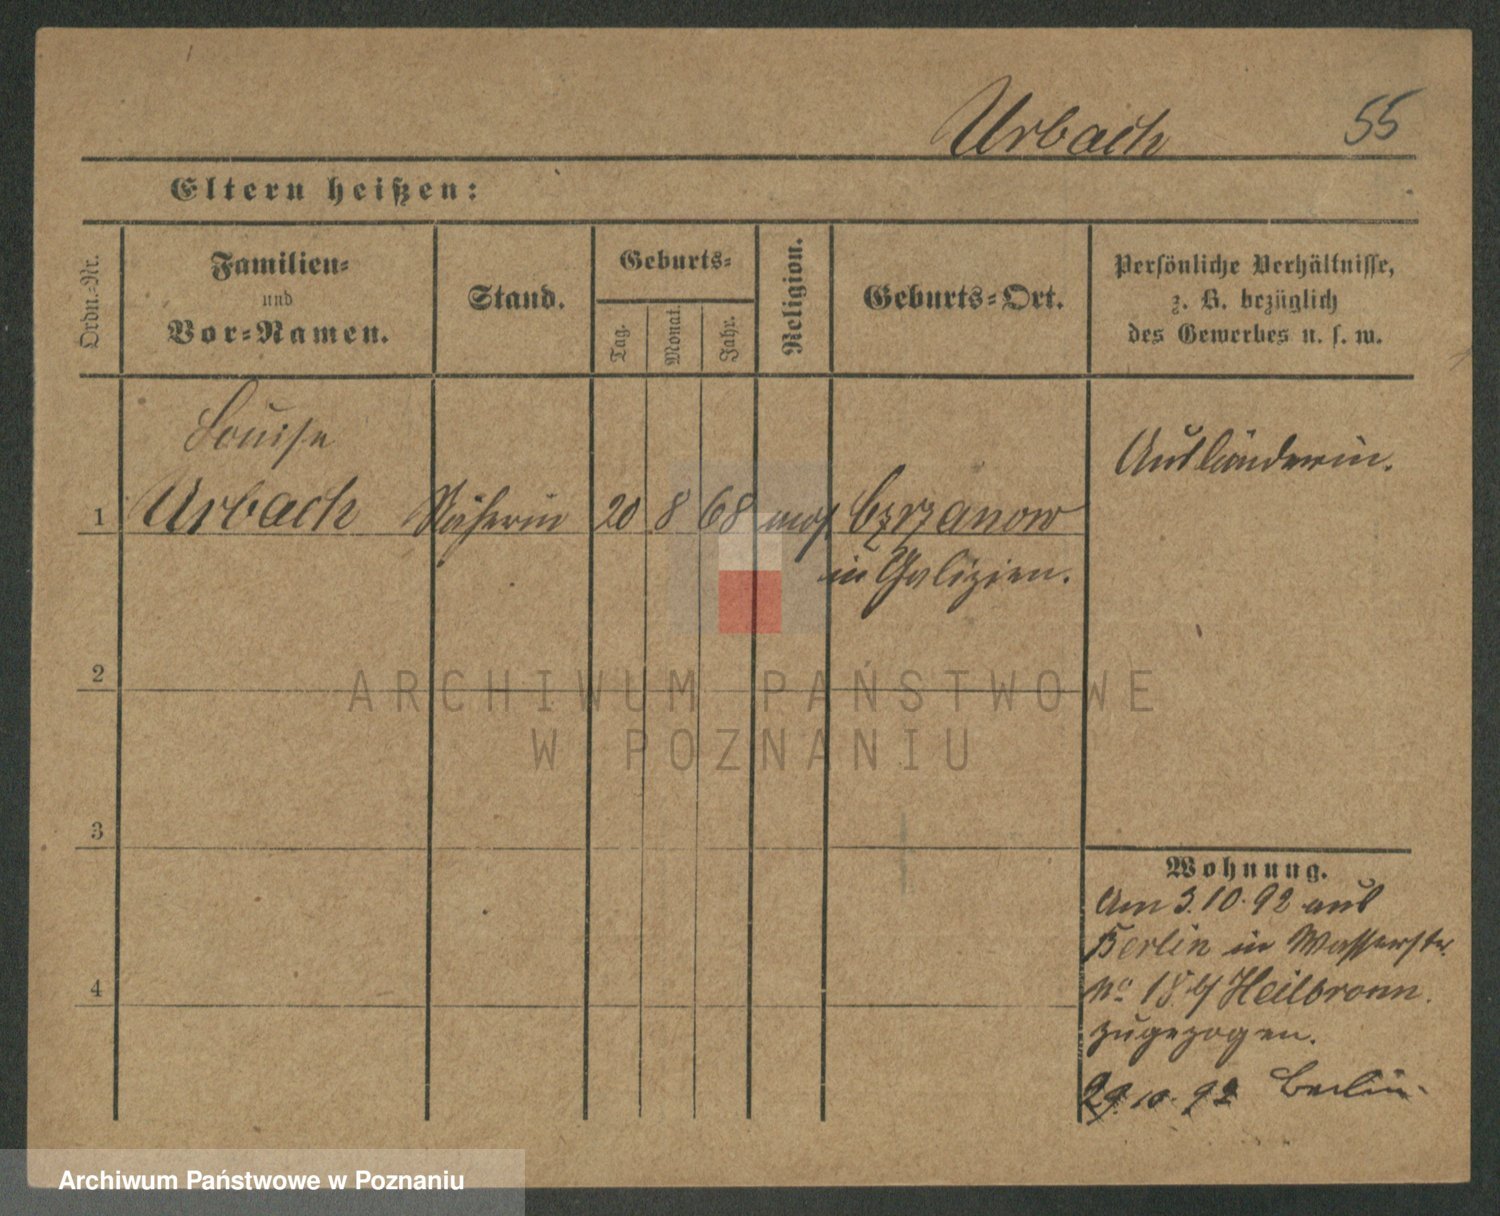 Urbach 55
Eltern heißen:
Ordn.-Nr.
Familien-
und
Vor-Namen.
Stand.
Geburts-
Tag.
Monat.
Jahr.
Religion.
Geburts-Ort.
Persönliche Verhältnisse,
z. B. bezüglich
des Gewerbes u. s. w.
Louise
Ausländerin.
1 Urbach Näherin 20 8 68 mos.
in Galizien.
2
ARCHIWUM PAŃSTWOWE
W POZNANIU
3
Wohnung.
Am 3.10.92 aus
Berlin in Wasserstr.
No 18 b/ Heilbronn.
zugezogen.
29.10.92 Berlin.
4
Archiwum Państwowe w Poznaniu